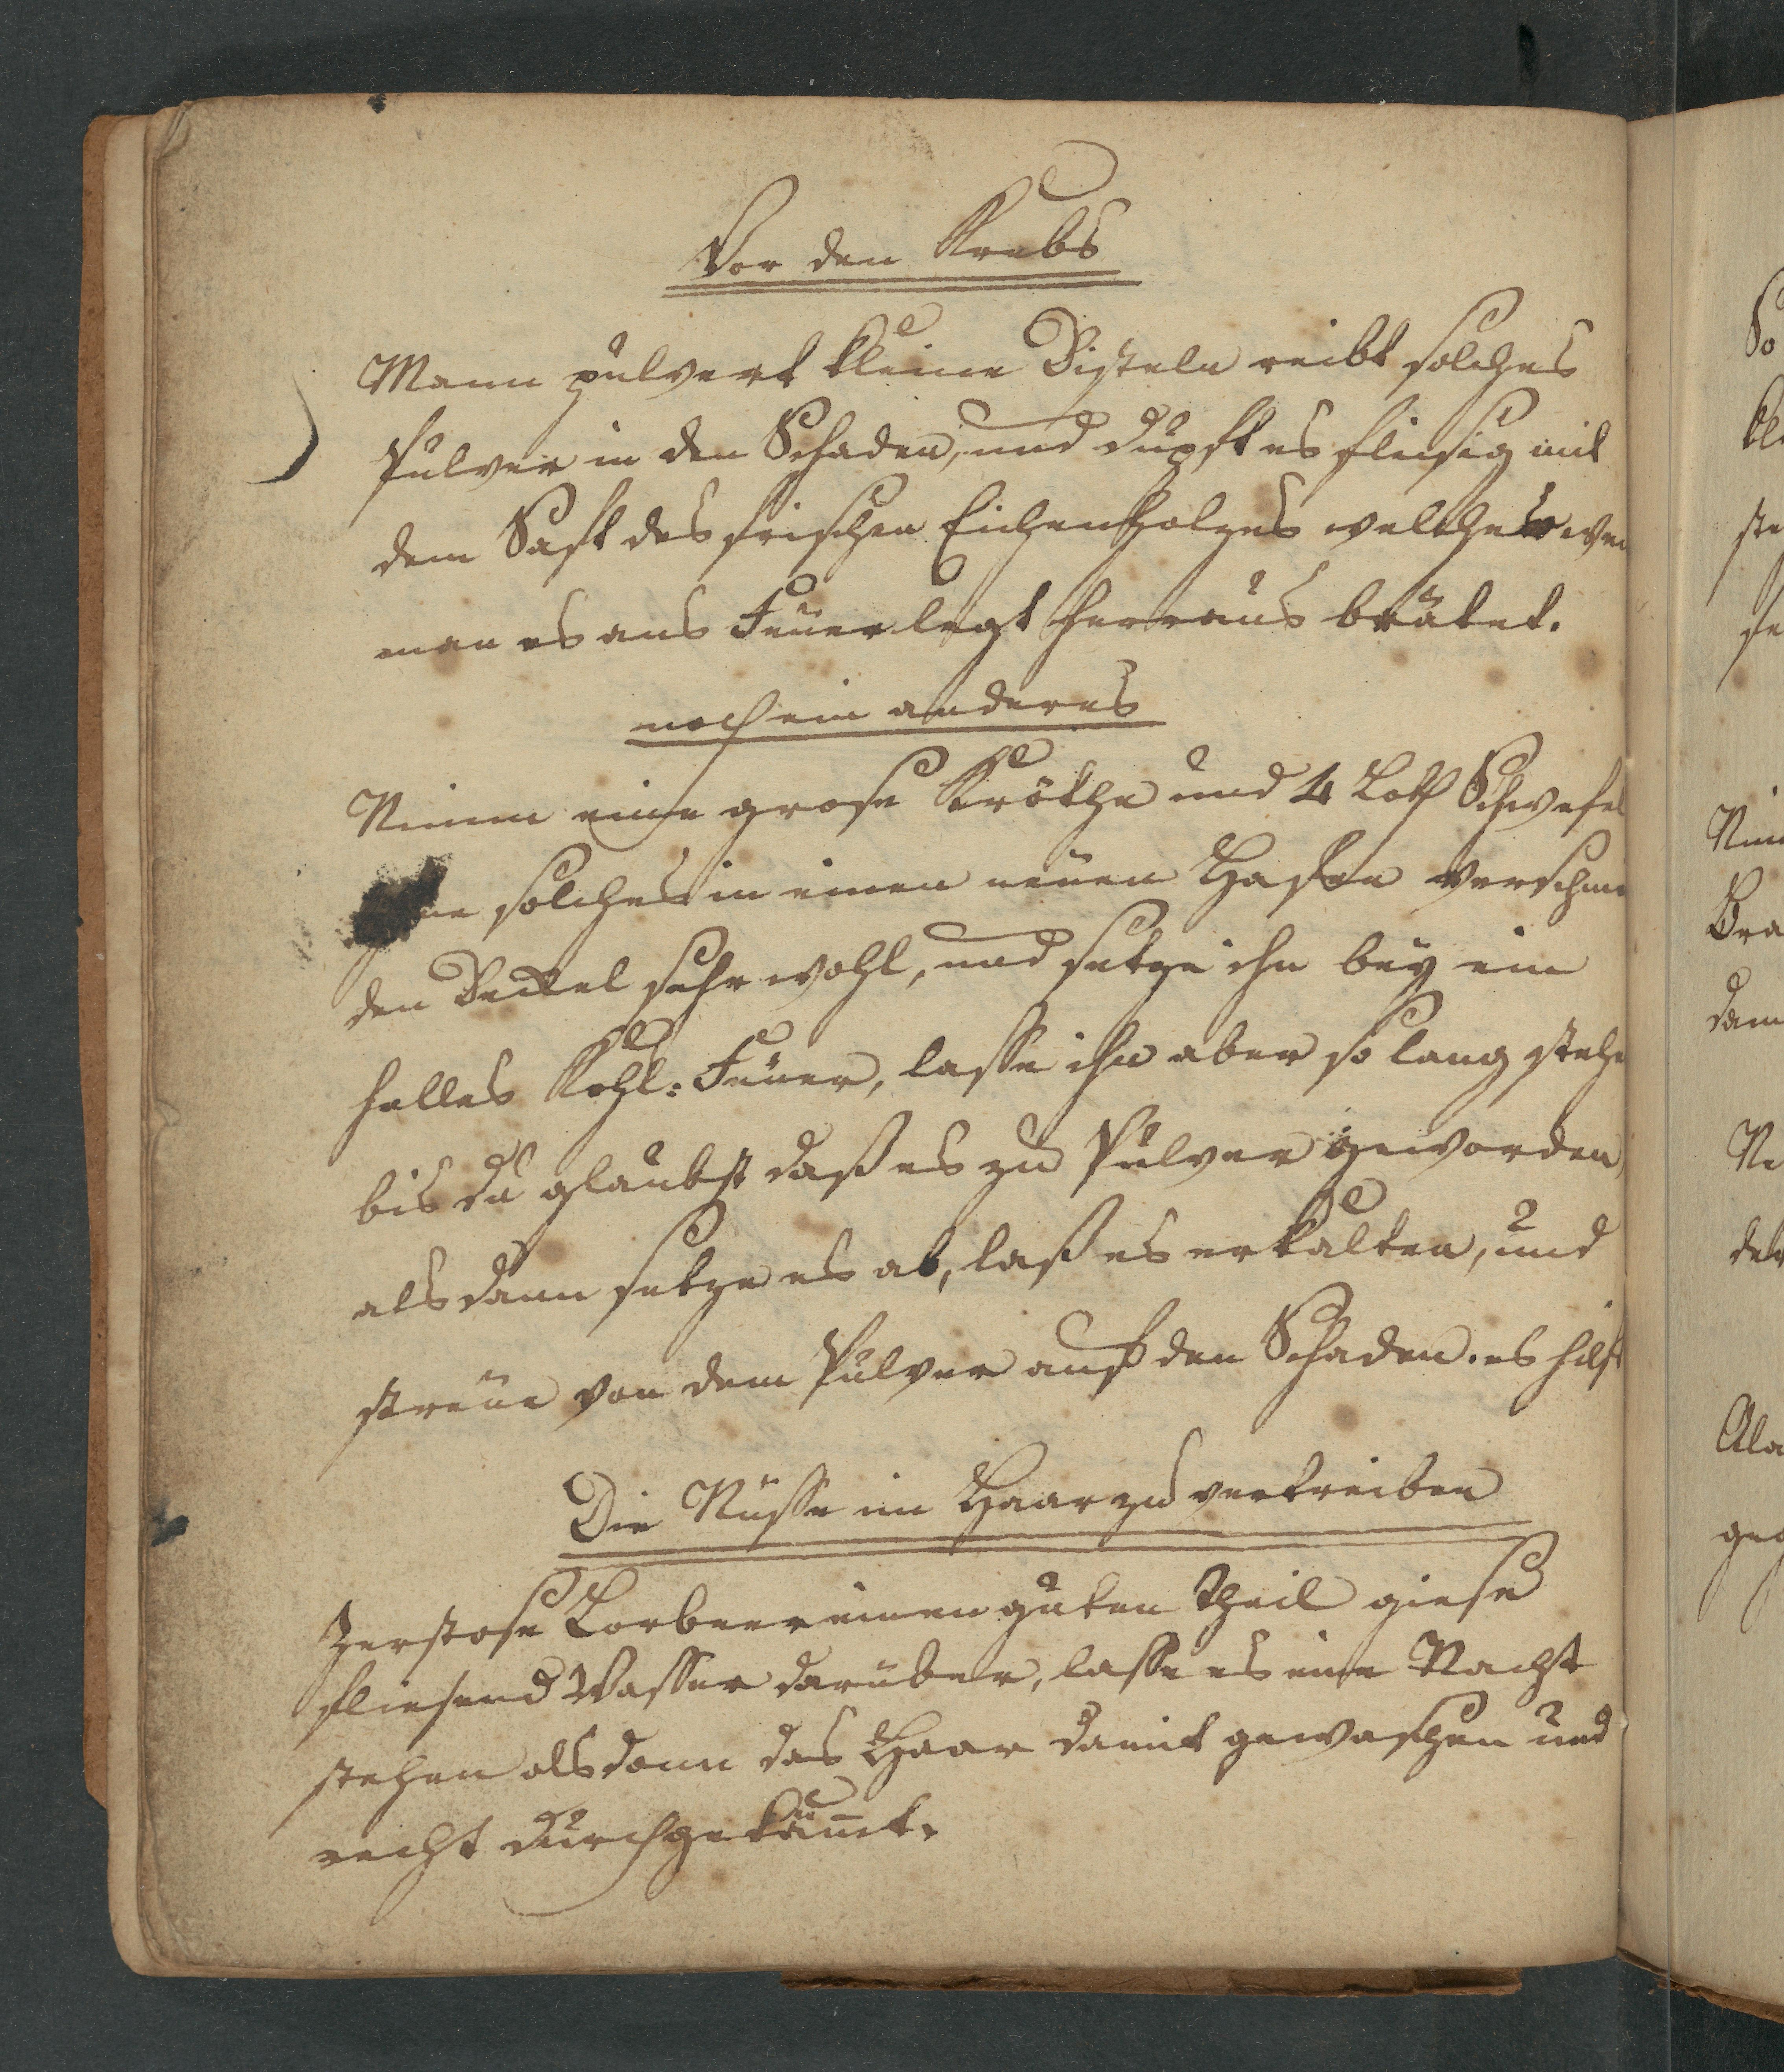 Vor den Krebs
Mann pulvert kleine Disteln reibt solches
Pulver in den Schaden, und dupft es fleisig mit
dem Saft des frischen Eichenholzes welcher
man es ans Feuer legt herraus brätet.
noch ein anderes
Nimm eine grose Kröthe und 4 Loth Schwefel
solches in einen neuen Hafen
den Deckel sehr wohl, und setze ihn bey ein
helles Kohl: Feuer, lasse ihn aber so lang
bis du glaubst daß es zu Pulver geworden,
alsdann setze es ab, laß es erkalten, und
streue von dem Pulver auf den Schaden. es hilft
Die Nüsse im Haar zu vertreiben
Zerstose Lorbeer einen guten Theil giese
fliesend Wasser darüber, lasse es eine Nacht
stehen alsdann das Haar damit gewaschen und
recht durchgekäm̄t.